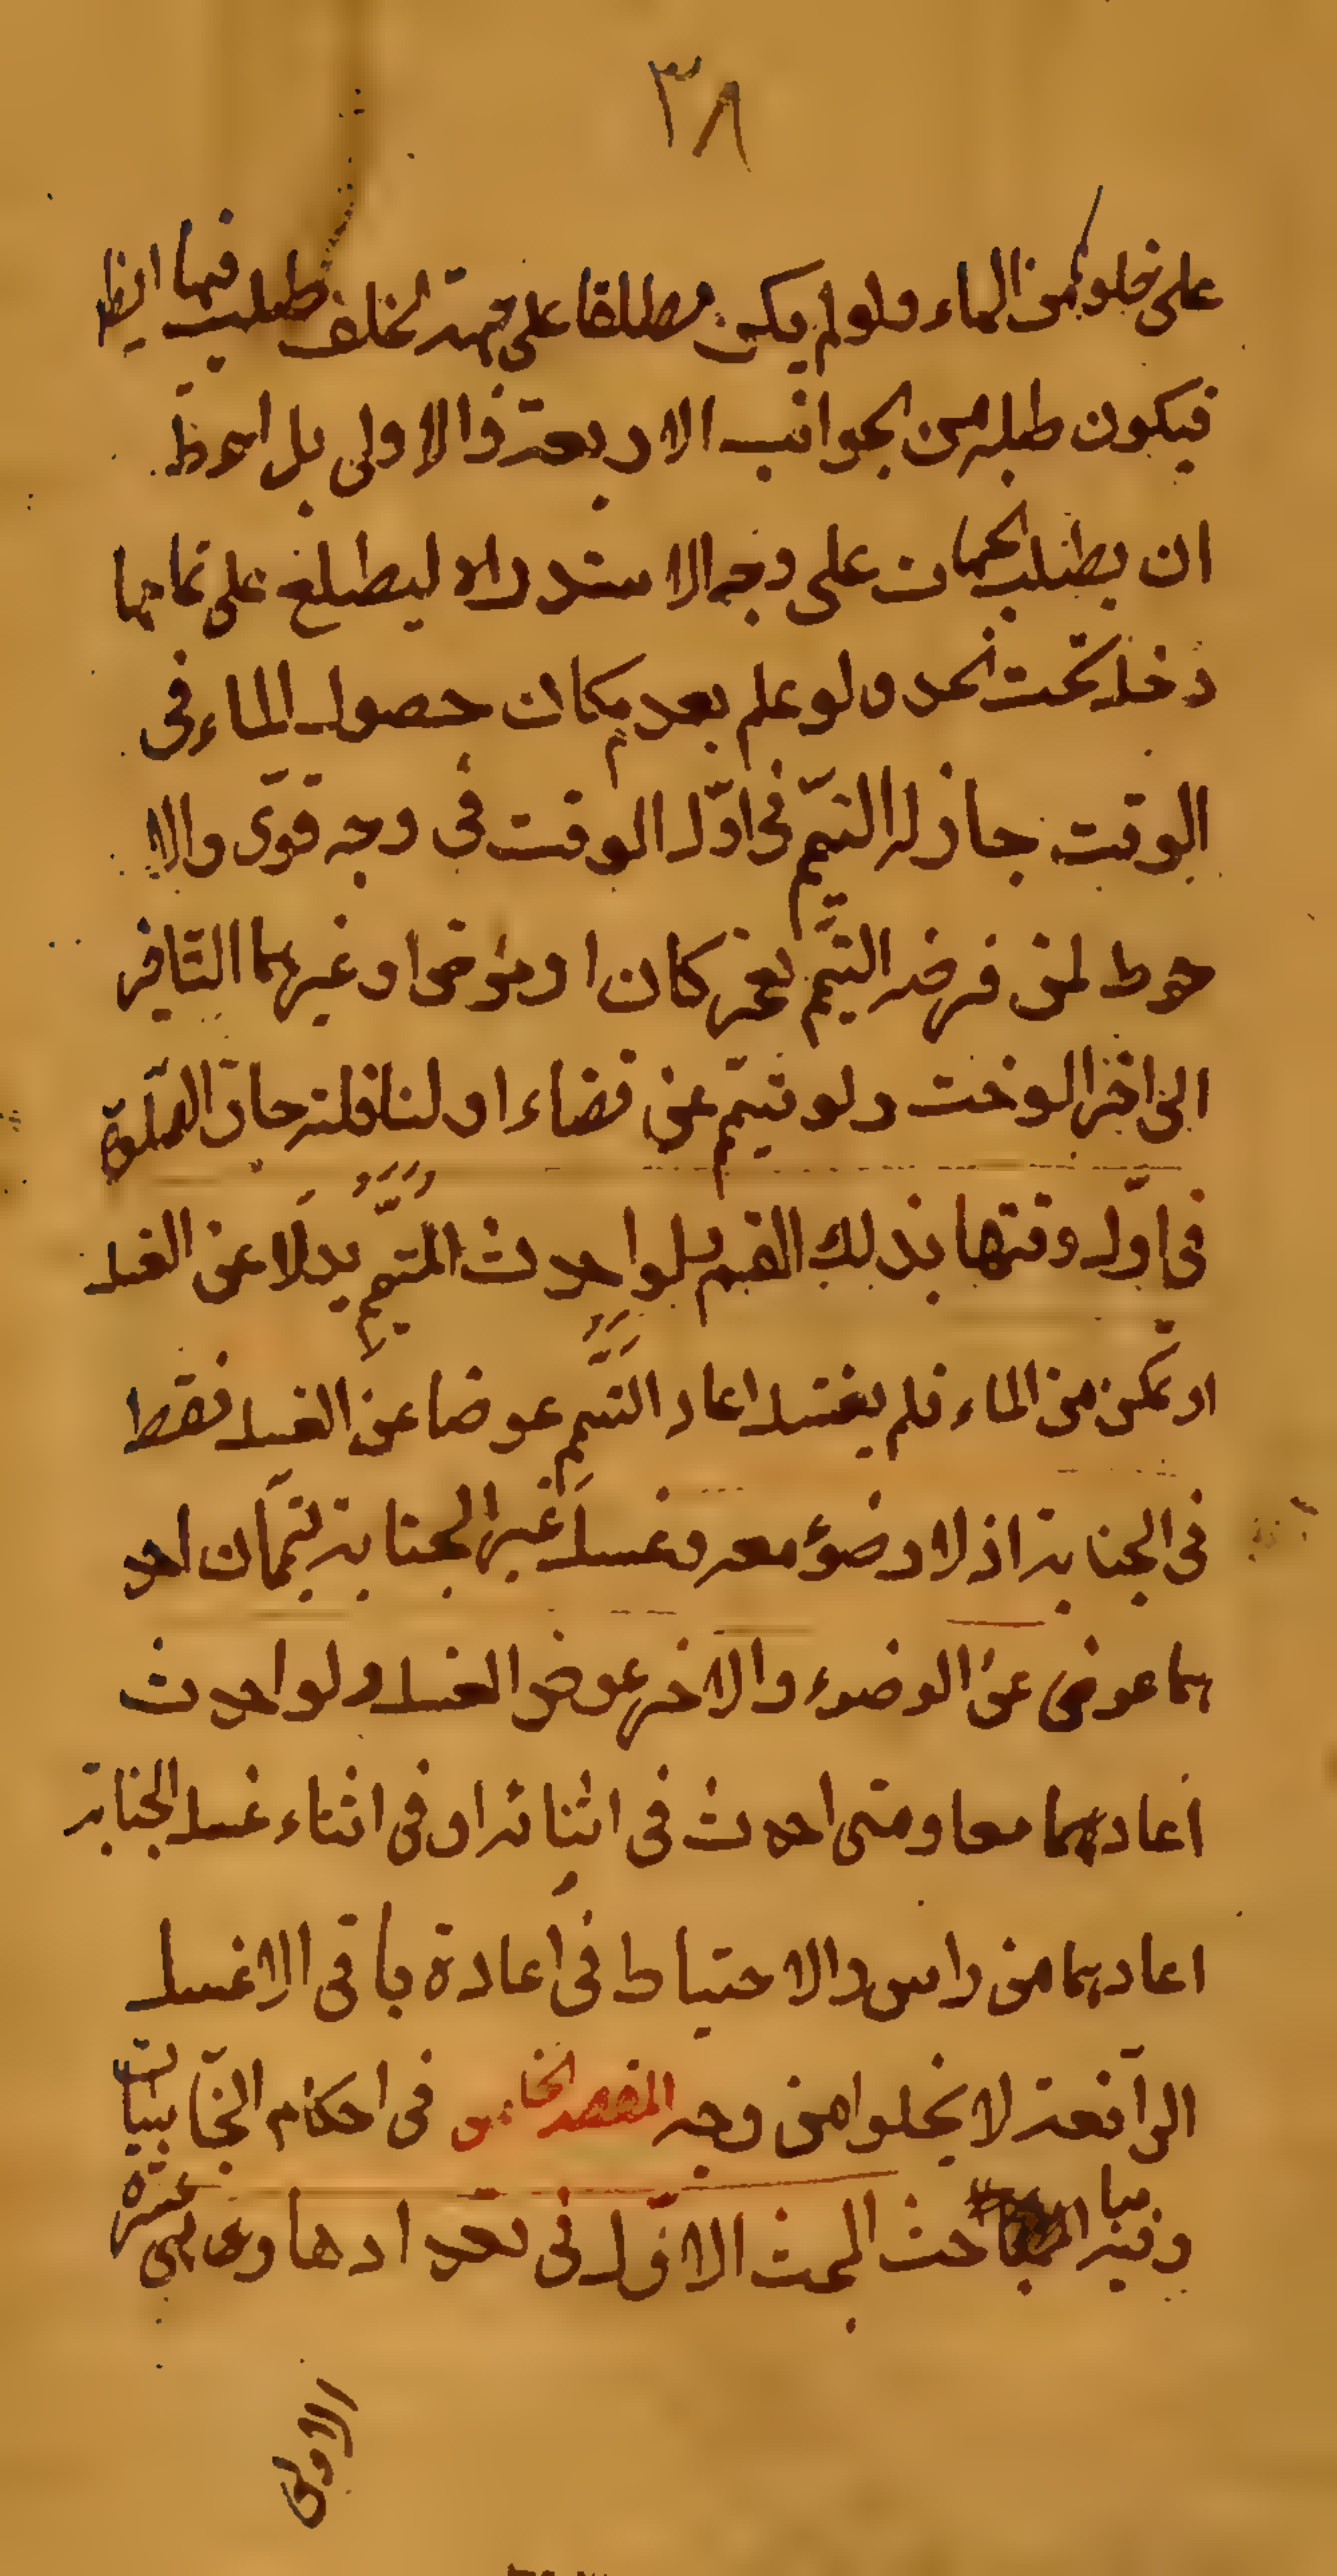 ٣٨
على خلوه من الماء ولو لم يكن مطلقا على جهة الخلف طلب فيها ايظ
فيكون طلبه من الجوانب الاربعة والاولى بل احوط
ان يطلب الجهات على وجه الاستدراه ليطلع على تمام ما
دخل تحت الحد ولو علم بعدم مكان حصول الماء في
الوقت جاز له التيمم في اول الوقت في وجه قوى والا
حوط لمن فرضه التيمم لعجز كان او برؤ او غيرهما التاخر
الى اخر الوخت ولو تيمم عن قضاء او لنافلة جاز الصلوة
في اول وقتها بذلك التيمم ولو احدث المتيمم بدلا عن الغسل
او تمكن من الماء فلم يغتسل اعاد التيمم عوضا عن الغسل فقط
في الجنابة اذ لا وضوء معه وغسل غير الجنابة تيممان احد
هما عوض عن الوضوء والاخر عوض الغسل ولو احدث
اعادهما معا ومتى احدث في اثنائه او في اثناء غسل الجنابة
اعادهما من راس والاحتياط في اعادة باقي الاغسل
الرآفعة لا يخلوا من وجه المقصد الخامس في احكام النجاسيات
وفيه مباحث المبحث الاول في تعدادها وهي عشرة
الاولى